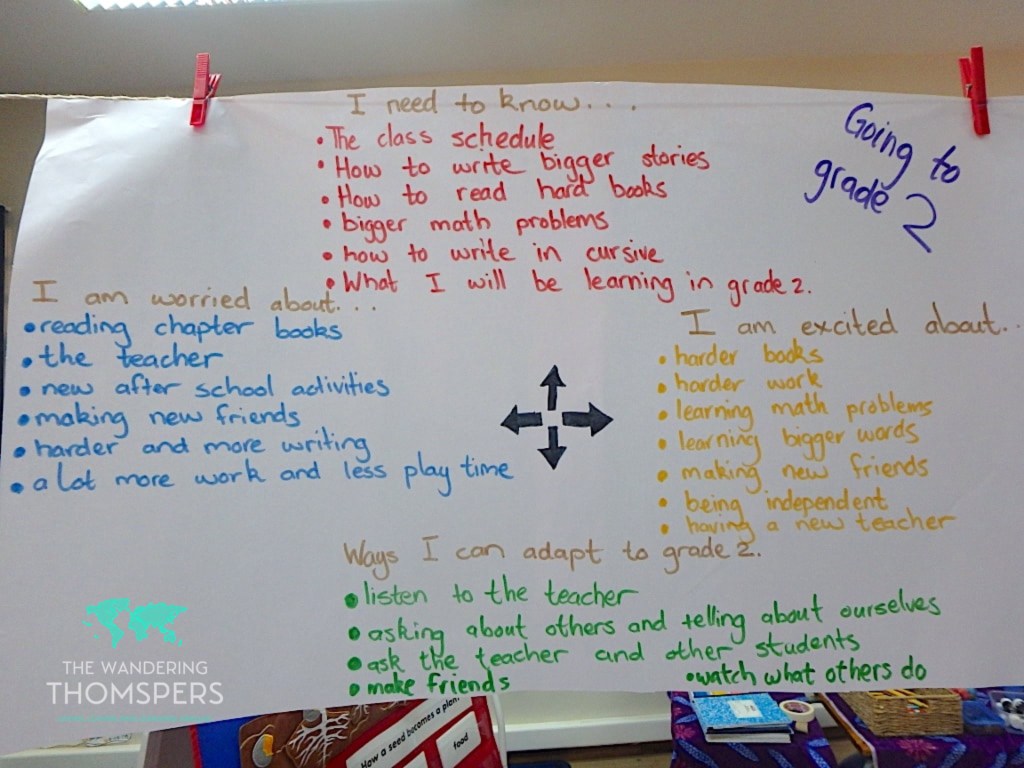 I need to know...
• The class schedule
• How to write bigger stories
• How to read hard books
• bigger math problems
• how to write in cursive
• What I will be learning in grade 2.
Going to
grade 2
I am worried about...
• reading chapter books
• the teacher
• new after school activities
• making new friends
• harder and more writing
• a lot more work and less play time
I am excited about..
• harder books
• harder work
• learning math problems
• learning bigger words
• making new friends
• being independent
• having a new teacher
Ways I can adapt to grade 2.
• listen to the teacher
• asking about others and telling about ourselves
• ask the teacher and other students
• make friends
• watch what others do
THE WANDERING
THOMSPERS
How a seed becomes a plant
food